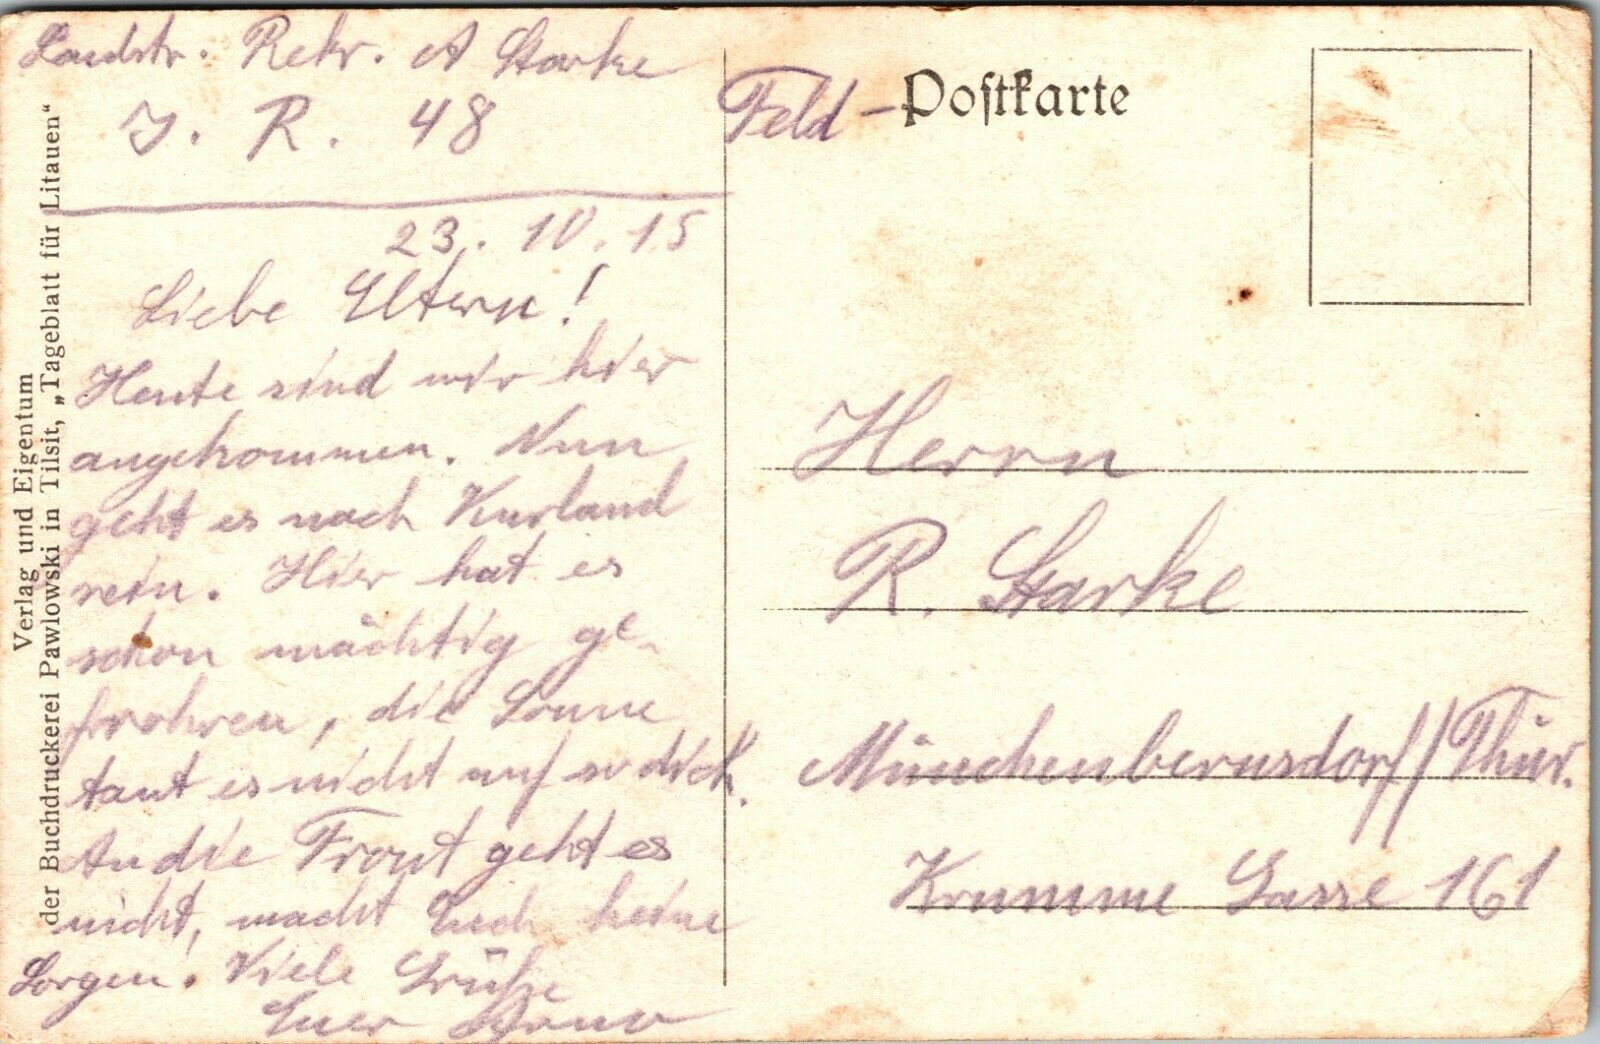 Landstr. Rekr. A Starke
J. R. 48
23. 10. 15
Liebe Eltern!
Heute sind wir hier
angekommen. Nun
geht es nach Kurland
rein. Hier hat es
schon mächtig ge-
frohren, die Sonne
taut es nicht auf so dick.
An die Front geht es
nicht, macht Euch keine
Sorgen. Viele Grüße
Euer Arno
Verlag und Eigentum
der Buchdruckerei Pawlowski in Tilsit, „Tageblatt für Litauen“
Feld-Postkarte
Herrn
R. Starke
Münchenbernsdorf/Thür.
Krumme Gasse 161